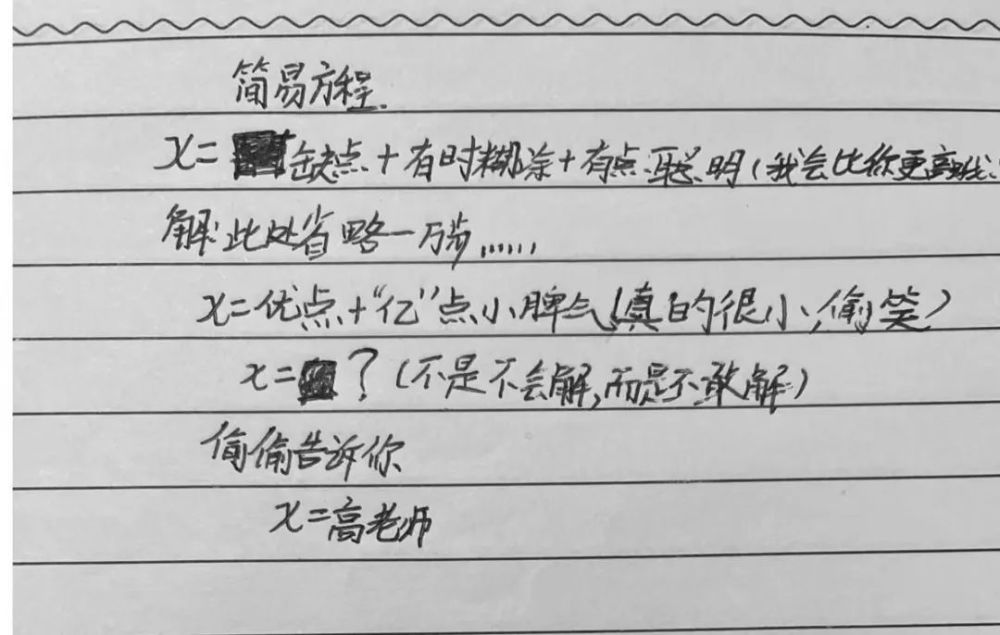 简易方程.
x=缺点+有时糊涂+有点聪明(我会比你更高哦
解:此处省略一万步......
x=优点+"亿"点小脾气(真的很小,偷笑)
x=?(不是不会解,而是不敢解)
偷偷告诉你
x=高老师